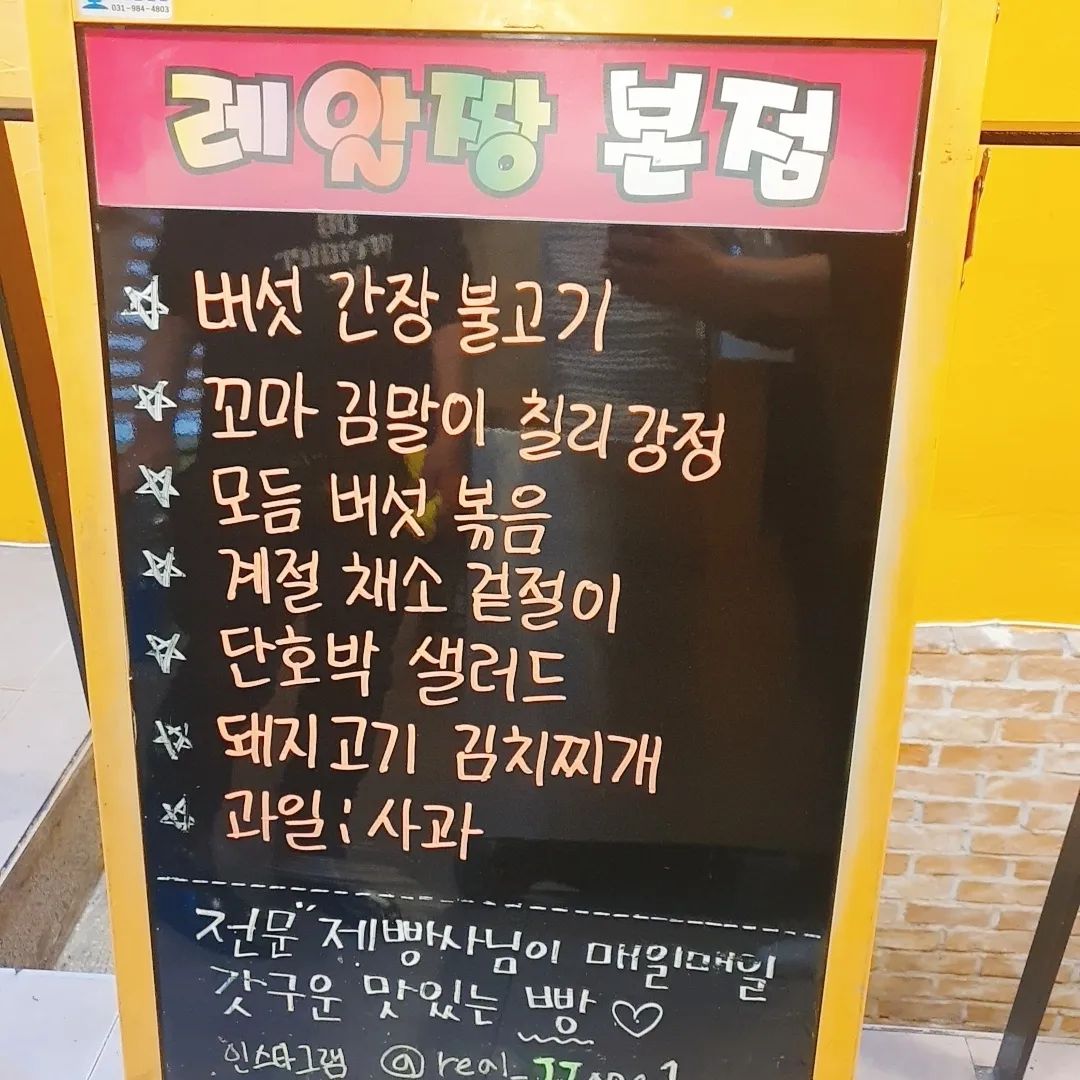 031-984-4803
레알짱 본점
버섯 간장 불고기
꼬마 김말이 칠리강정
모듬 버섯 볶음
계절 채소 겉절이
단호박 샐러드
돼지고기 김치찌개
과일; 사과
전문 제빵사님이 매일매일
갓구운 맛있는 빵♡
인스타그램